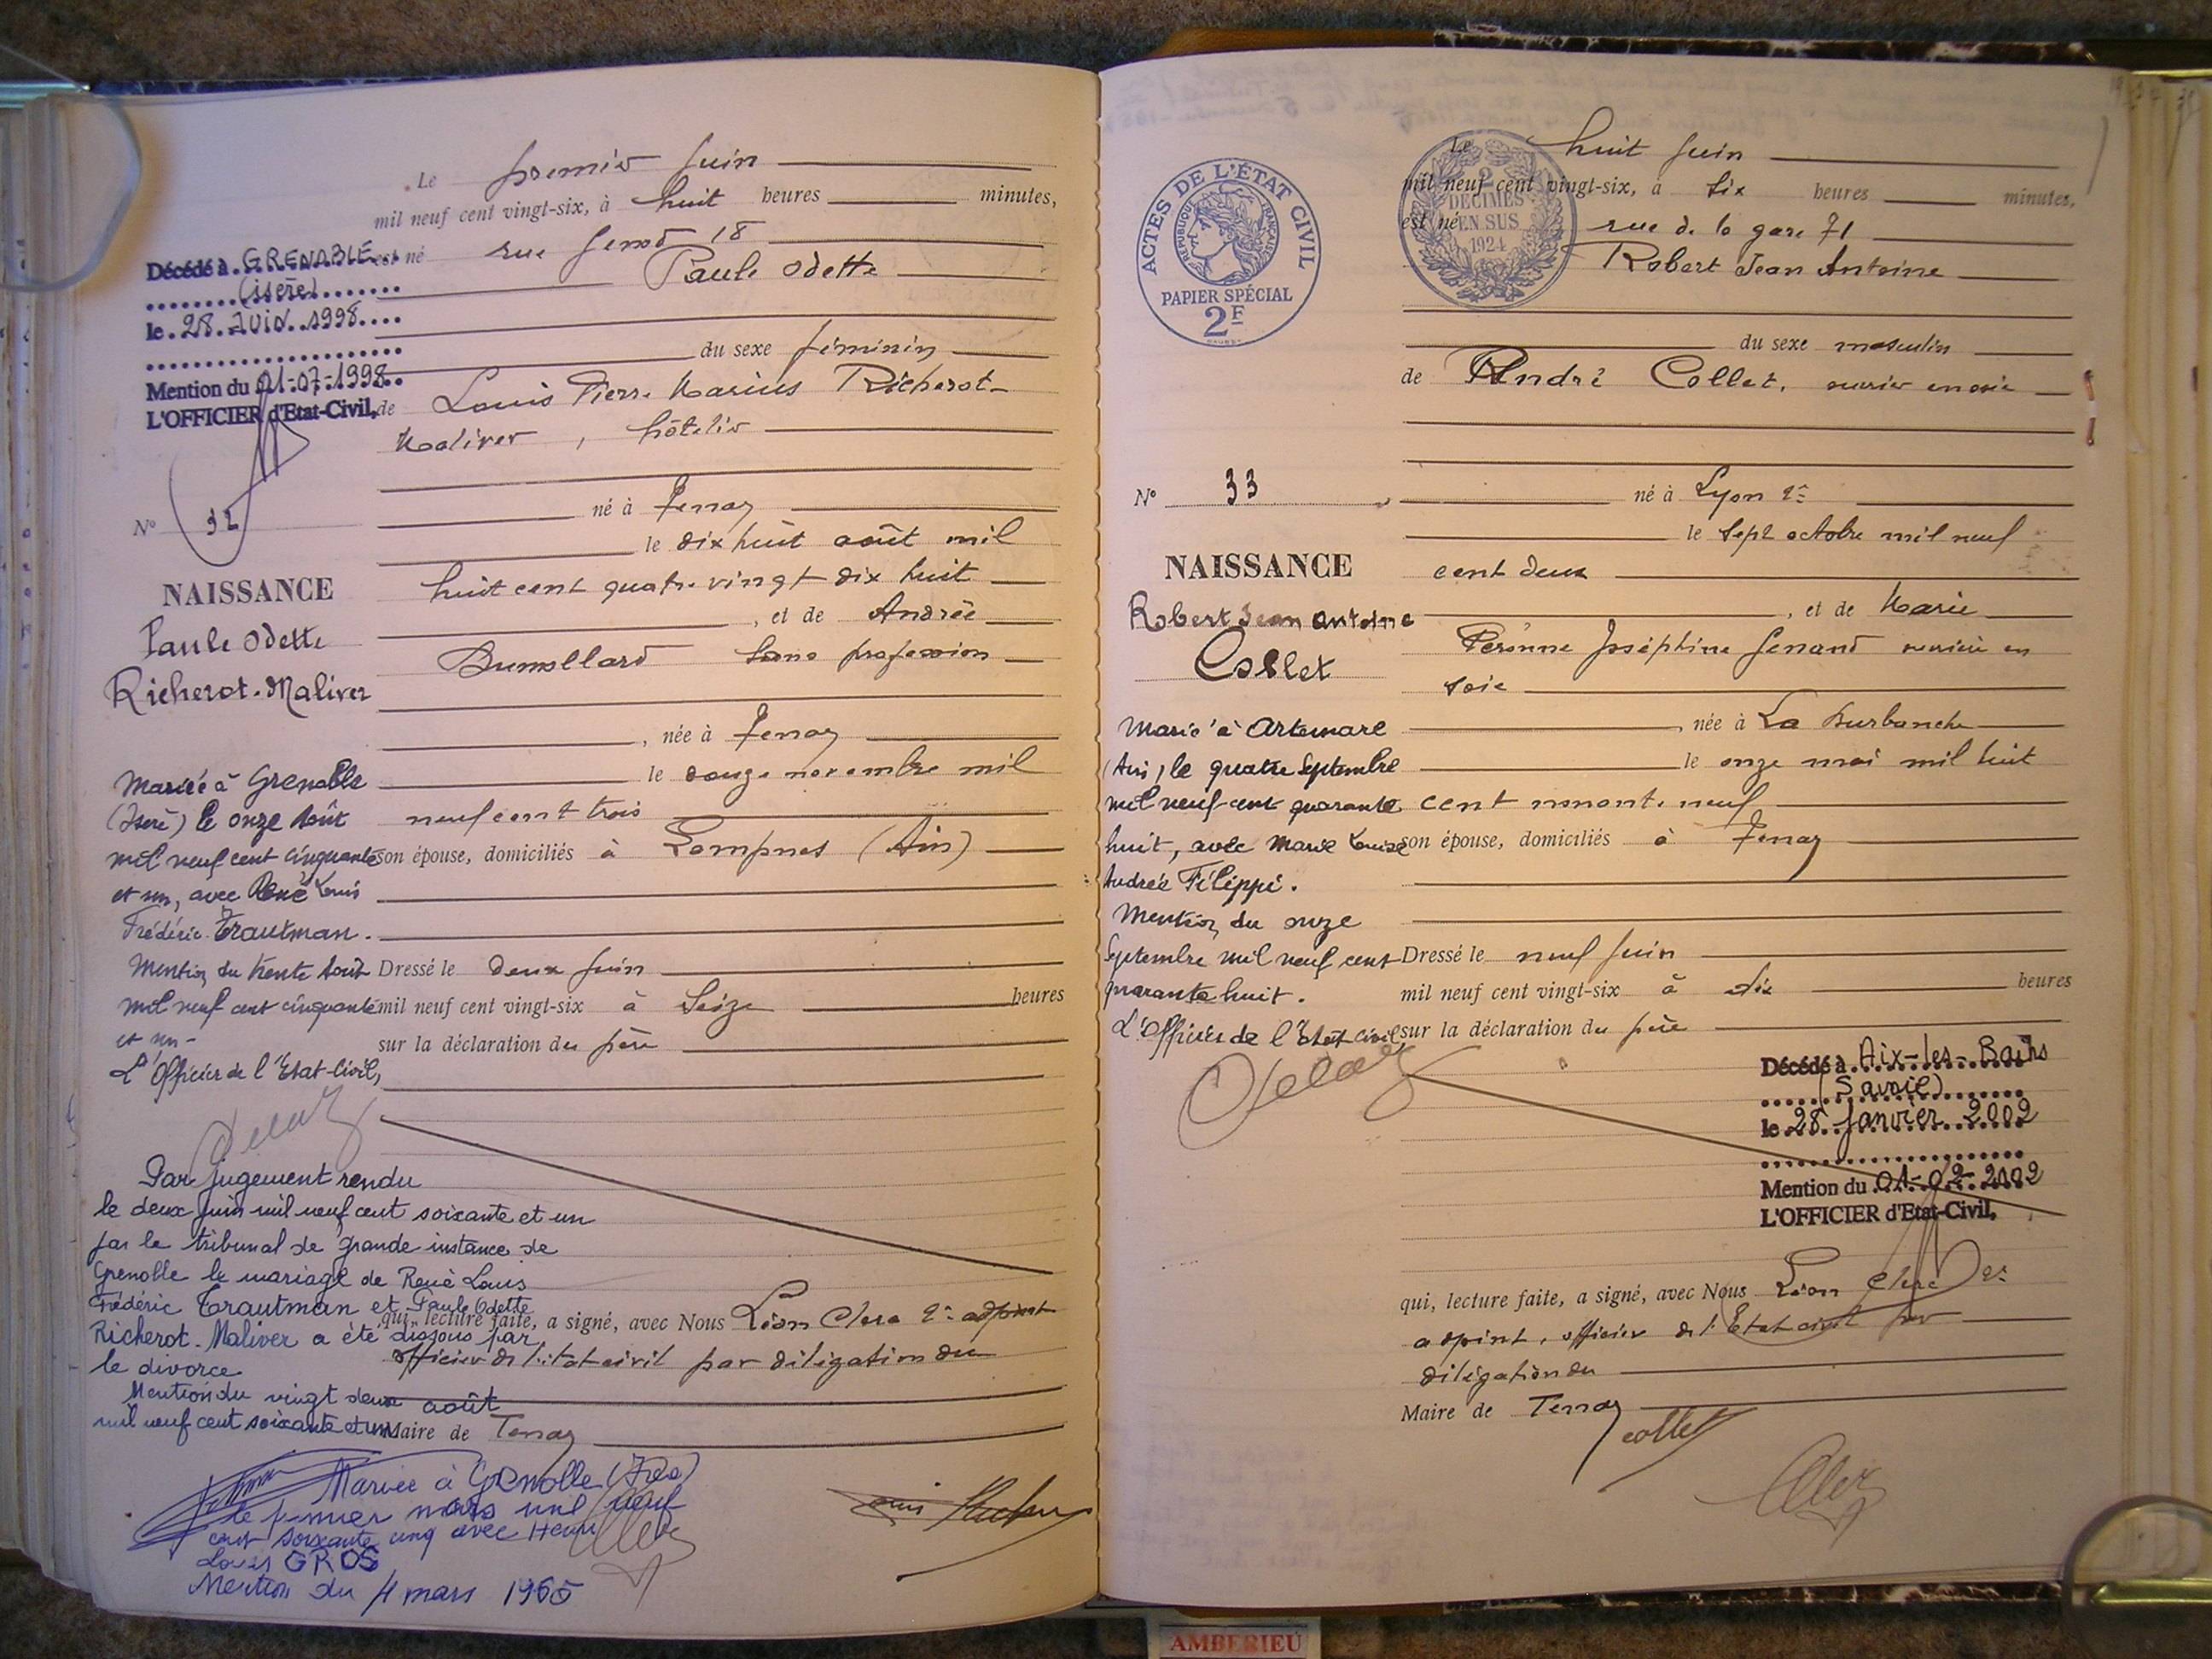 Le premier Juin
mil neuf cent vingt-six, à huit heures minutes,
est né rue Genod 18
Paule Odette
du sexe féminin
de Louis Pierre Marius Richerot-
Maliver, hôtelier
né à Tenay
le dix huit août mil
huit cent quatre vingt dix huit
, et de Andrée
Dumollard Sans profession
, née à Tenay
le douze novembre mil
neuf cent trois
son épouse, domiciliés à Lompnes (Ain)
Dressé le deux Juin
mil neuf cent vingt-six à Seize heures
sur la déclaration du père
qui, lecture faite, a signé, avec Nous Léon Clerc 2e adjoint
officier de l'état civil par délégation du
Maire de Tenay
Décédé à GRENOBLE
(isère)
le 28 JUIN 1998
Mention du 01-07-1998
L'OFFICIER d'Etat-Civil,
N° 32
NAISSANCE
Paule Odette
Richerot-Maliver
Mariée à Grenoble
(Isère) le onze Août
mil neuf cent cinquante
et un, avec René Louis
Frédéric Trautman.
Mention du trente Août
mil neuf cent cinquante
et un-
L'Officier de l'Etat-Civil,
Par jugement rendu
le deux juin mil neuf cent soixante et un
par le tribunal de grande instance de
Grenoble le mariage de René Louis
Frédéric Trautman et Paule Odette
Richerot-Maliver a été dissous par
le divorce
Mention du vingt deux août
mil neuf cent soixante et un
Mariée à Grenoble (Isère)
le premier mars mil neuf
cent soixante cinq avec Henri
Louis GROS
Mention du 4 mars 1965
ACTES DE L'ÉTAT CIVIL
RÉPUBLIQUE FRANÇAISE
PAPIER SPÉCIAL
2F
2
DÉCIMES
EN SUS
1924
Le huit Juin
mil neuf cent vingt-six, à Six heures minutes,
est né rue de la gare 71
Robert Jean Antoine
du sexe masculin
de André Collet, ouvrier en soie
né à Lyon 2e
le Sept octobre mil neuf
cent deux
, et de Marie
Péronne Joséphine Genand ouvrière en
soie
, née à La Burbanche
le onze mai mil huit
cent nonante neuf
son épouse, domiciliés à Tenay
Dressé le neuf Juin
mil neuf cent vingt-six à dix heures
sur la déclaration du père
N° 33
NAISSANCE
Robert Jean Antoine
Collet
Marié à Artemare
(Ain) le quatre Septembre
mil neuf cent quarante
huit, avec Marie Louise
Andrée Filippi.
Mention du onze
Septembre mil neuf cent
quarante huit.
L'Officier de l'Etat Civil,
Décédé à Aix-les-Bains
(Savoie)
le 28 Janvier 2002
Mention du 01-02-2002
L'OFFICIER d'Etat-Civil,
qui, lecture faite, a signé, avec Nous Léon Clerc 2e
adjoint, officier de l'Etat civil par
délégation du
Maire de Tenay
Collet
AMBERIEU